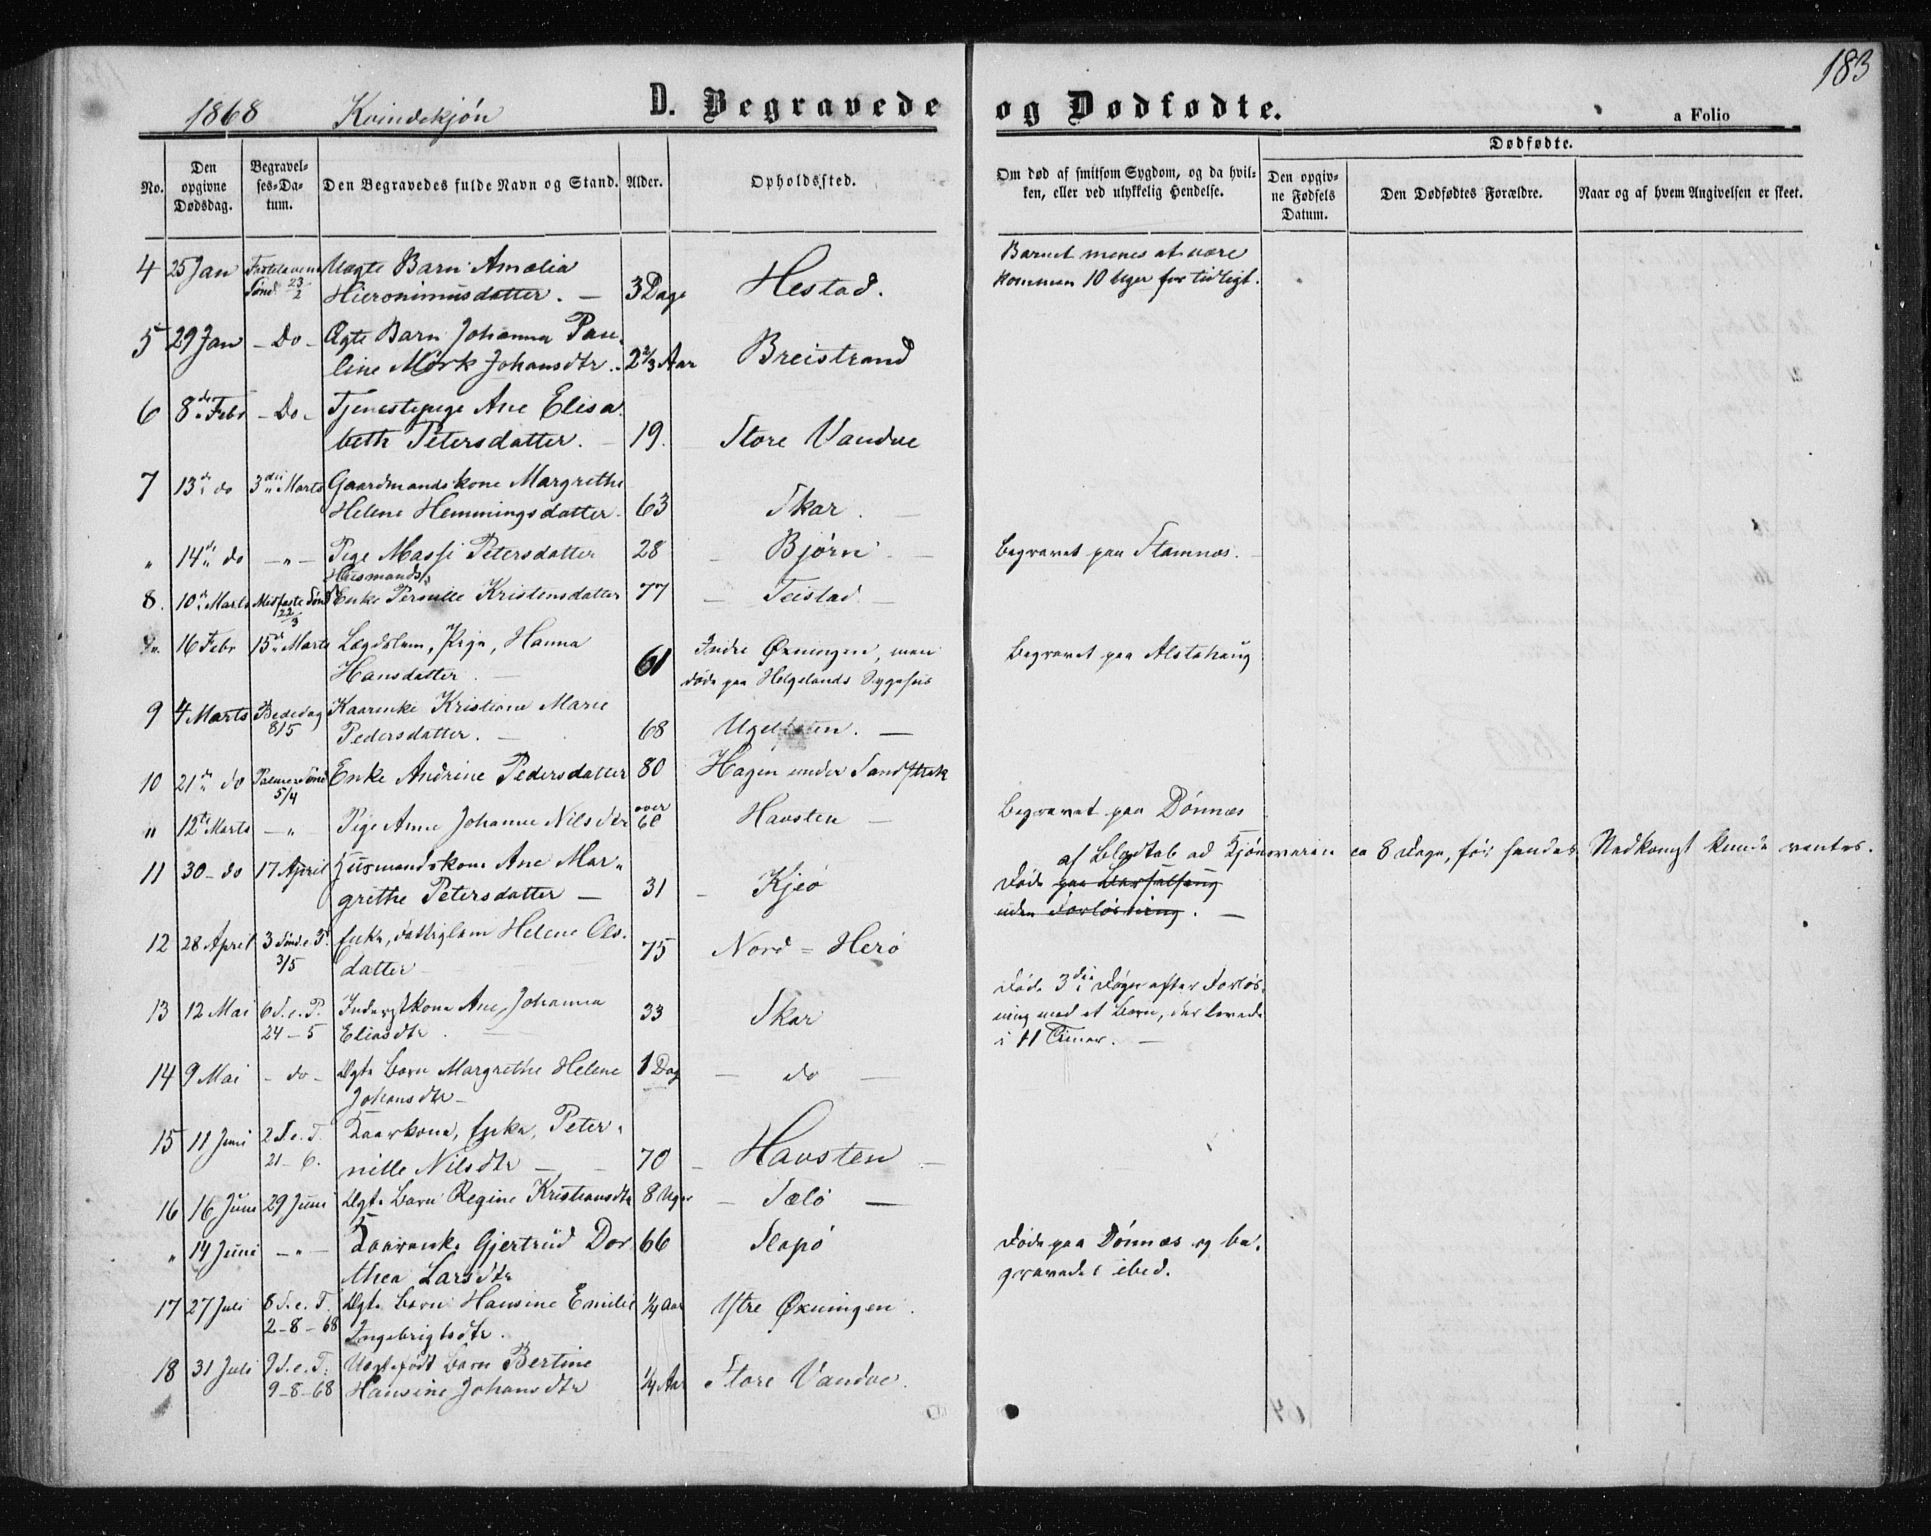 183
1868 Kvindekjøn D. Begravede og Dødfødte. a Folio
Dødfødte.
No. Den opgivne Dødsdag. Begravelses-Datum. Den Begravedes fulde Navn og Stand. Alder. Opholdssted. Om død af smitsom Sygdom, og da hvilken, eller ved ulykkelig Hendelse. Den opgivne Fødsels Datum. Den Dødfødtes Forældre. Naar og af hvem Angivelsen er skeet.
4 25 Jan Uægte Barn Amalia Barnet menes at være
Sønd 23/2 Hieronimusdatter. — 3 Dage Hestad. kommen 10 Uger for tidligt.
5 29 Jan - Do - Ægte Barn Johanna Pau-
line Mørk Johansdtr. 2 2/3 Aar Breistrand
6 8de Febr - Do - Tjenestepige Ane Elisa
beth Petersdatter. — 19. Store Vandve
7 13de do 3die Marts Gaardmandskone Margrethe
Helene Hemmingsdatter 63 Skar. —
" 14de do - " - Pige Massi Petersdatter 28 — Bjørn — Begravet paa Stamnes. —
Husmands
8. 10de Marts Midfaste Sønd 22/3 Enke Pernille Kristensdatter 77 — Teistad —
16 Febr 15de Marts Lægdslem, Pige, Hanna Indre Øxningen, men Begravet paa Alstahaug
Hansdatter — 61 døde paa Helgelands Sygehus
9 4 Marts Bededag 8/5 Kaarenke Kristiane Marie
Pedersdatter. — 68 —
10 21de do Palmesønd 5/4 Enke Andrine Pedersdatter 80 Hagen under Sandstrak
" 12te Marts - " - Pige Anne Johanne Nilsdtr over 60 Havsten — Begravet paa Dønnes
11 30 - do 17 April Husmandskone Ane Mar- af Blodtab ad Kjønsveien ca 8 Dage, før hendes Nedkomst kunde ventes.
grethe Petersdatter — 31 — Kjeø Døde paa Barselseng
uden Forløsning. —
12 28 April 3 Sönd. e. P. 3/5 Enke, fattiglem Helene Ols-
datter — 75 Nord = Herø
13 12 Mai 6 S. e. P. 24 - 5 Inderstkone Ane Johanna Døde 3die Døgn efter Forløs-
Eliasdtr. 33 Skar ning med et Barn, der levede
i 11 Timer. —
14 9 Mai - do - Ægte Barn Margrethe Helene 1 Dag — do —
Johansdtr —
15 11 Juni 2 S. e. T. 21 - 6. Kaarkone, Enke, Peter-
nille Nilsdtr — 70 — Havsten —
16 16 Juni 29 Juni Ægte Barn Regine Kristiansdtr 8 Uger — Tælø —
" 14 Juni - " - Kaarenke Gjertrud Dor 66 Slapø Døde paa Dønnes og be-
thea Larsdtr gravedes ibid.
17 27 Juli 8 S. e. T. 2 - 8 - 68 Ægte Barn Hansine Emilie 1/4 Aar Ytre Øxningen.
Ingebrigtsdtr.
18 31 Juli 9 S. e. T. 9 - 8 - 68 Uægtefødt Barn Bertine
Hansine Johansdtr 1/4 Aar Store Vandve.